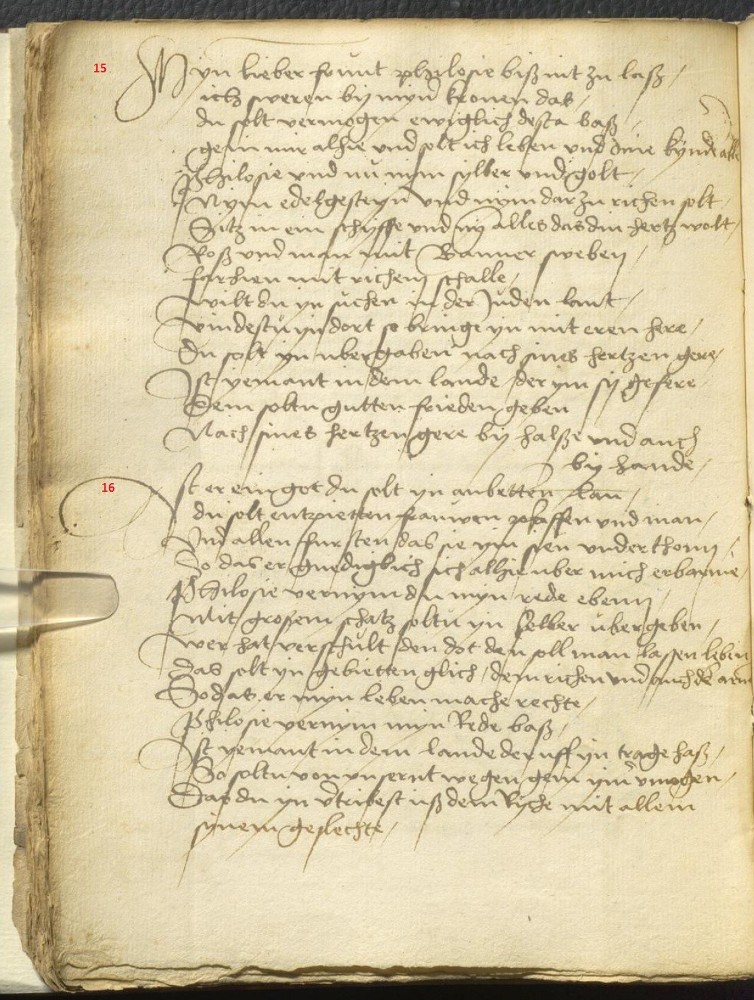 15
Myn lieber frunt philosie biß nit zu laß /
ich sweren by myner kronen das
du solt vermogen ewiglich desta baß
gein mir alhie und solt ich leben und dine kynde alle
Philosie und nu nym sylber und golt
Nym edelgesteyn und nym dar zu richen solt
Sitz in ein schyffe und nym alles das din hertz wolt
Roß und man mit Banner sweben
farhien mit richem schalle /
wilt du yn suchen in der Juden lant
vindestu yn dort so bringe yn mit eren here /
Du solt yn uber gaben nach sines hertzen gere /
Ist yemant in dem lande der ym sy gefere
Dem soltu gutten frieden geben
Nach sines hertzen gere by halße und auch
by hande /
16
Ist er ein got du solt yn anbetten lan /
du solt entpietten frauwen pfaffen und man /
Und allen fursten das sie ym sien underthonn /
So das er gnediglich sich alhie uber mich erbarme
Philosie vernym du myn rede eben
Mit grossem schatz soltu yn selber ubergeben
wer hat verschult den dot den soll man lassen leben
das solt yn gebietten glich / dem richen und auch dem arm
So das er myn leben mache rechte /
Philosie vernym myn Rede baß /
Ist yemant in dem lande der uff yn trage haß /
So soltu von unsernt wegen gein ym vermogen
Das du yn vertribest uß dem Ryche mit allem
synem geslechte /